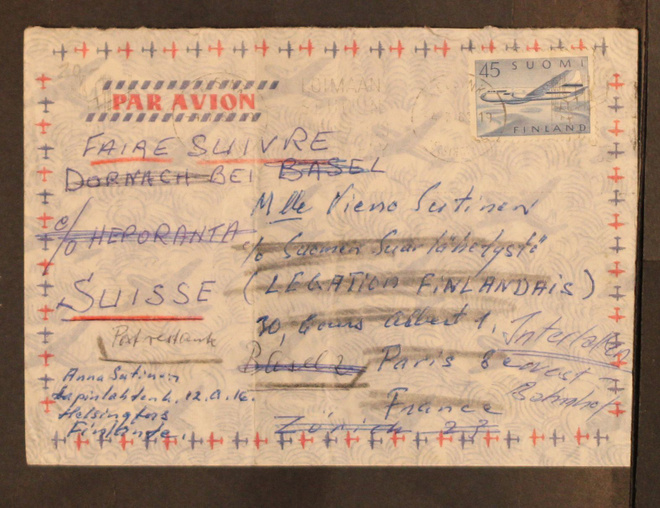 45 SUOMI
FINLAND
LOIMAAN
PAR AVION
FAIRE SUIVRE
DORNACH BEI BASEL
Mlle Vieno Sutinen
c/o HEPORANTA
c/o Suomen Suurlähetystö
SUISSE
(LEGATION FINLANDAIS)
30, Cours Albert 1.
Interlaken
Post restante
Basel 2
Paris 8
Bahnhof
Anna Sutinen
Lapinlahdenk. 12.A.16.
France
Helsingfors
Finlande.
Zürich 23